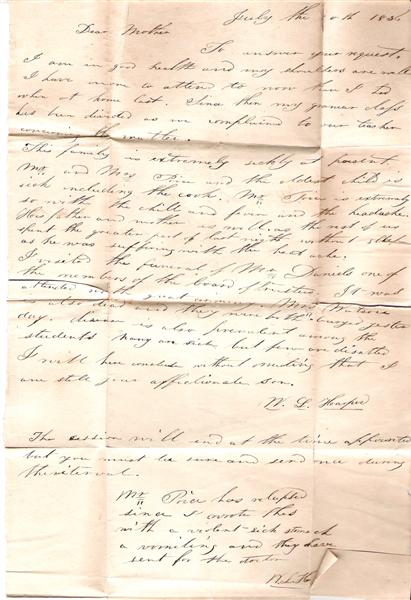 July the 20th 1836
Dear Mother
To answer your request.
I am in good health and my shoulders are well
I have more to attend to now than I had
when at home last. Since then my grammer class
has been divided as we complained to our teacher
concerning the matter.
This family is extremely sickly at present.
Mr and Mrs Price and the oldest child is
sick including the cook. Mr Price is extremely
so with the chills and fever and the headache.
His father and mother as well as the rest of us
spent the greater part of last night without sleep
as he was suffering with the head ache.
I visited the funeral of Mr Daniels one of
the members of the board of trustees. It was
attended with great ceremony. Mrs
is also dead and they were both buried yester
day. disease is also prevalent among the
students many are sick but few are
I will here conclude without that I
am still your affectionate son.
W. L. Harper
The session will end at the time appointed
but you must be sure and send once during
the interval.
Mr Price has relapsed
since I wrote this
with a violent sick stomach
a vomiting and they have
sent for the doctor